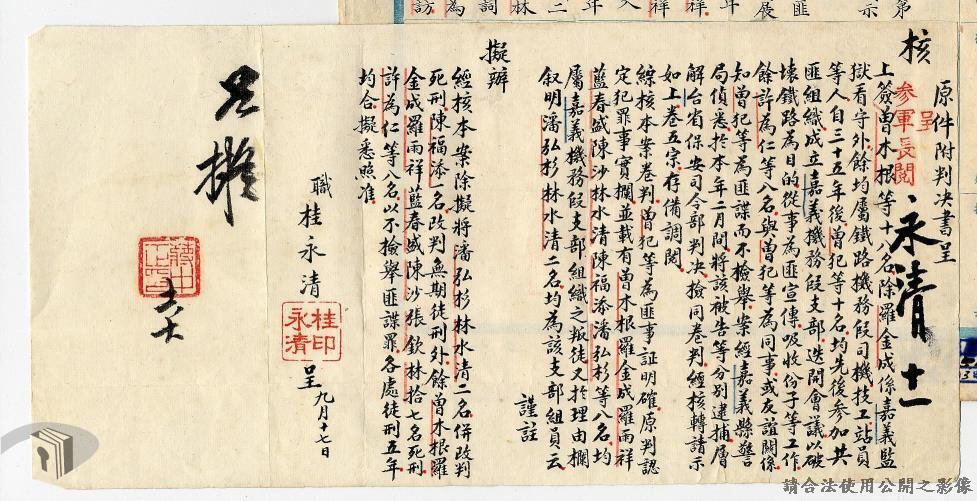 核
原件附判決書呈
呈
參軍長閱
永清
十一
上簽曾木根等十八名除羅金成係嘉義監
獄看守外餘均屬鐵路機務段司機技工站員
等人自三十五年後曾犯等十名均先後參加共
匪組織成立嘉義機務段支部迭開會議以破
壞鐵路為目的從事為匪宣傳吸收份子等工作
餘許為仁等八名與曾犯等為同事或友誼關係
知曾犯等為匪諜而不檢舉案經嘉義縣警
局偵悉於本年二月間將該被告等分別逮捕層
解台省保安司令部判決檢同卷判經核轉請示
如上卷五宗存備調閱
綜核本案卷判曾犯等為匪事証明確原判認
定犯罪事實欄並載有曾木根羅金成羅雨祥
藍春盛陳沙林水清陳福添潘弘杉等八名均
屬嘉義機務段支部組織之叛徒又於理由欄
叙明潘弘杉林水清二名均為該支部組員云
謹註
擬辦
經核本案除擬將潘弘杉林水清二名併改判
死刑陳福添一名改判無期徒刑外餘曾木根羅
金成羅雨祥藍春盛陳沙張欽林拾七名死刑
許為仁等八名以不檢舉匪諜罪各處徒刑五年
均合擬悉照准
職桂永清
桂印永清
呈
九月十七日
如擬
蔣中正印
請合法使用公開之影像